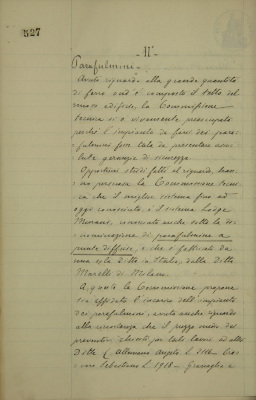 527
- 11 -
Parafulmini -
Avuto riguardo alla grande quantità
di ferro ond'è composto il tetto del
nuovo edificio, la Commissione
tecnica si è vivamente preoccupata
perchè l'impianto da farsi dei para-
fulmini fosse tale da presentare asso-
lute garanzie di sicurezza.
Opportuni studi fatti al riguardo, han-
no persuasa la Commissione tecni-
ca che il miglior sistema fino ad
oggi conosciuto, è il sistema
conosciuto anche sotto la de-
nominazione di parafulmine a
punte diffuse, e che è fabbricato da
una sola Ditta in Italia, dalla Ditta
di Milano.
A questa la Commissione propone-
va affidato l'incarico dell'impianto
dei parafulmini, avuto anche riguardo
alla circostanza che il prezzo medio dei
preventivi chiesti per tale lavoro ad altre
Ditte ( Allemano Angelo L.
Sebastiano L. 1918 -